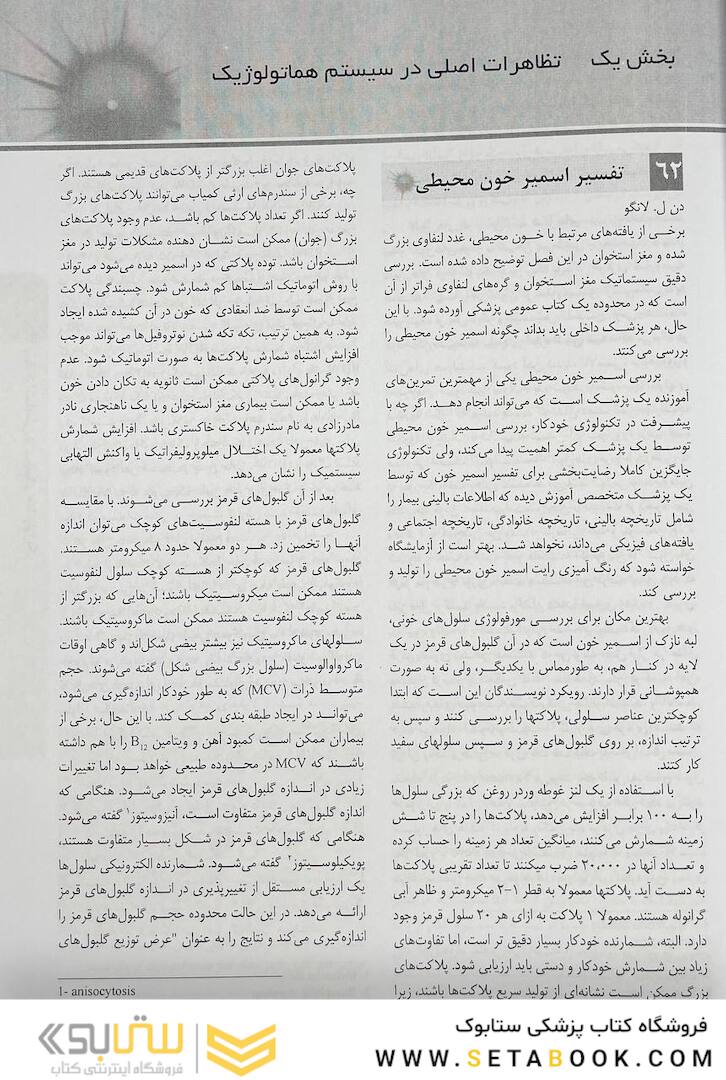 بخش یک تظاهرات اصلی در سیستم هماتولوژیک
۶۲ تفسیر اسمیر خون محیطی
دن ل. لانگو
برخی از یافته‌های مرتبط با خـون محیطی، غدد لنفاوی بزرگ
شده و مغز استخوان در این فصل توضیح داده شده است. بررسی
دقیق سیستماتیک مغز اسـتخوان و گره‌های لنفاوی فراتر از آن
است که در محدوده یک کتاب عمومی پزشکی آورده شود. با این
حال، هر پزشـک داخلی باید بداند چگونه اسمیر خون محیطی را
بررسی می‌کنند.
بررسی اسـمیر خون محیطی یکی از مهمترین تمرین‌های
آموزنده یک پزشـک است که می‌تواند انجام دهـد. اگر چه با
پیشـرفت در تکنولوژی خودکار، بررسی اسـمیر خون محیطی
توسط یک پزشـک کمتر اهمیت پیدا می‌کند، ولی تکنولوژی
جایگزین کاملا رضایت‌بخشی برای تفسیر اسمیر خون که توسط
یک پزشـک متخصص آموزش دیده که اطلاعات بالینی بیمار را
شامل تاریخچه بالینی، تاریخچه خانوادگی، تاریخچه اجتماعی و
یافته‌های فیزیکی می‌داند، نخواهد شـد. بهتر است از آزمایشگاه
خواسته شود که رنگ آمیزی رایت اسمیر خون محیطی را تولید و
بررسی کند.
بهترین مکان برای بررسـی مورفولوژی سلول‌های خونی،
لبه نازک از اسـمیر خون است که در آن گلبول‌های قرمز در یک
لایه در کنـار هم، به طورمماس با یکدیگـر، ولی نه به صورت
همپوشـانی قرار دارند. رویکرد نویسـندگان این است که ابتدا
کوچکترین عناصر سـلولی، پلاکتها را بررسـی کنند و سپس به
ترتیب اندازه، بر روی گلبول‌های قرمز و سـپس سلولهای سفید
کار کنند.
با اسـتفاده از یک لنز غوطه وردر روغن که بزرگی سلول‌ها
را به ۱۰۰ برابـر افزایش می‌دهد، پلاکت‌ها را در پنج تا شـش
زمینه شـمارش می‌کنند، میانگین تعداد هر زمینه را حساب کرده
و تعـداد آنها در ۲۰،۰۰۰ ضرب میکنند تا تعداد تقریبی پلاکت‌ها
به دسـت آید. پلاکتها معمولا به قطر ۱-۲ میکرومتر و ظاهر آبی
گرانوله هستند. معمولا ۱ پلاکت به ازای هر ۲۰ سلول قرمز وجود
دارد. البته، شـمارنده خودکار بسیار دقیق تر است، اما تفاوت‌های
زیاد بین شـمارش خودکار و دستی باید ارزیابی شود. پلاکت‌های
بزرگ ممکن اسـت نشانه‌ای از تولید سریع پلاکت‌ها باشند، زیرا
پلاکت‌های جوان اغلب بزرگتر از پلاکت‌های قدیمی هستند. اگر
چه، برخی از سندرم‌های ارثی کمیاب می‌توانند پلاکت‌های بزرگ
تولید کنند. اگر تعداد پلاکت‌ها کم باشـد، عدم وجود پلاکت‌های
بزرگ (جوان) ممکن است نشـان دهنده مشکلات تولید در مغز
اسـتخوان باشد. توده پلاکتی که در اسمیر دیده می‌شود می‌تواند
با روش اتوماتیک اشـتباها کم شمارش شود. چسبندگی پلاکت
ممکن است توسط ضد انعقادی که خون در آن کشیده شده ایجاد
شود. به همین ترتیب، تکه تکه شدن نوتروفیل‌ها می‌تواند موجب
افزایش اشتباه شمارش پلاکت‌ها به صورت اتوماتیک شود. عدم
وجود گرانول‌های پلاکتی ممکن است ثانویه به تکان دادن خون
باشد یا ممکن است بیماری مغز استخوان و یا یک ناهنجاری نادر
مادرزادی به نام سندرم پلاکت خاکستری باشد. افزایش شمارش
پلاکتها معمولا یک اختـلال میلوپرولیفراتیک یا واکنش التهابی
سیستمیک را نشان می‌دهد.
بعد از آن گلبول‌های قرمز بررسـی می‌شـوند. با مقایسـه
گلبول‌های قرمز با هسته لنفوسـیت‌های کوچک می‌توان اندازه
آنهـا را تخمین زد. هـر دو معمولا حدود ۸ میکرومتر هسـتند.
گلبول‌های قرمز که کوچکتر از هسـته کوچک سلول لنفوسیت
هستند ممکن است میکروسـیتیک باشند؛ آن‌هایی که بزرگتر از
هسته کوچک لنفوسیت هستند ممکن است ماکروسیتیک باشند.
سـلولهای ماکروسیتیک نیز بیشتر بیضی شکل‌اند و گاهی اوقات
ماکرواوالوسیت (سلول بزرگ بیضی شکل) گفته می‌شوند. حجم
متوسـط ذرات (MCV) که به طور خودکار اندازه‌گیری می‌شود،
می‌توانـد در ایجاد طبقه بندی کمـک کند. با این حال، برخی از
بیماران ممکن است کمبود آهن و ویتامین B12 را با هم داشته
باشـند که MCV در محدوده طبیعی خواهد بـود اما تغییرات
زیادی در انـدازه گلبول‌های قرمز ایجاد می‌شـود. هنگامی که
اندازه گلبول‌های قرمز متفاوت است، آنیزوسیتوز۱ گفته می‌شود.
هنگامی که گلبول‌های قرمز در شـکل بسـیار متفاوت هسـتند،
پویکیلوسـیتوز۲ گفته می‌شـود. شـمارنده الکترونیکی سلول‌ها
یک ارزیابی مسـتقل از تغییرپذیری در اندازه گلبول‌های قرمز
ارائـه می‌دهد. در این حالت محدوده حجـم گلبول‌های قرمز را
اندازه‌گیری می‌کند و نتایج را به عنوان "عرض توزیع گلبول‌های
1- anisocytosis
فروشگاه کتاب پزشکی ستابوک
WWW.SETABOOK.COM
ستابوک
فروشگاه اینترنتی کتاب